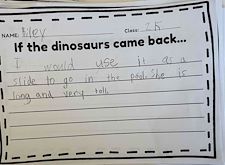 NAME: Riley Class: 2K
If the dinosaurs came back...
I would use it as a
slide to go in the pool. She is
long and very tall